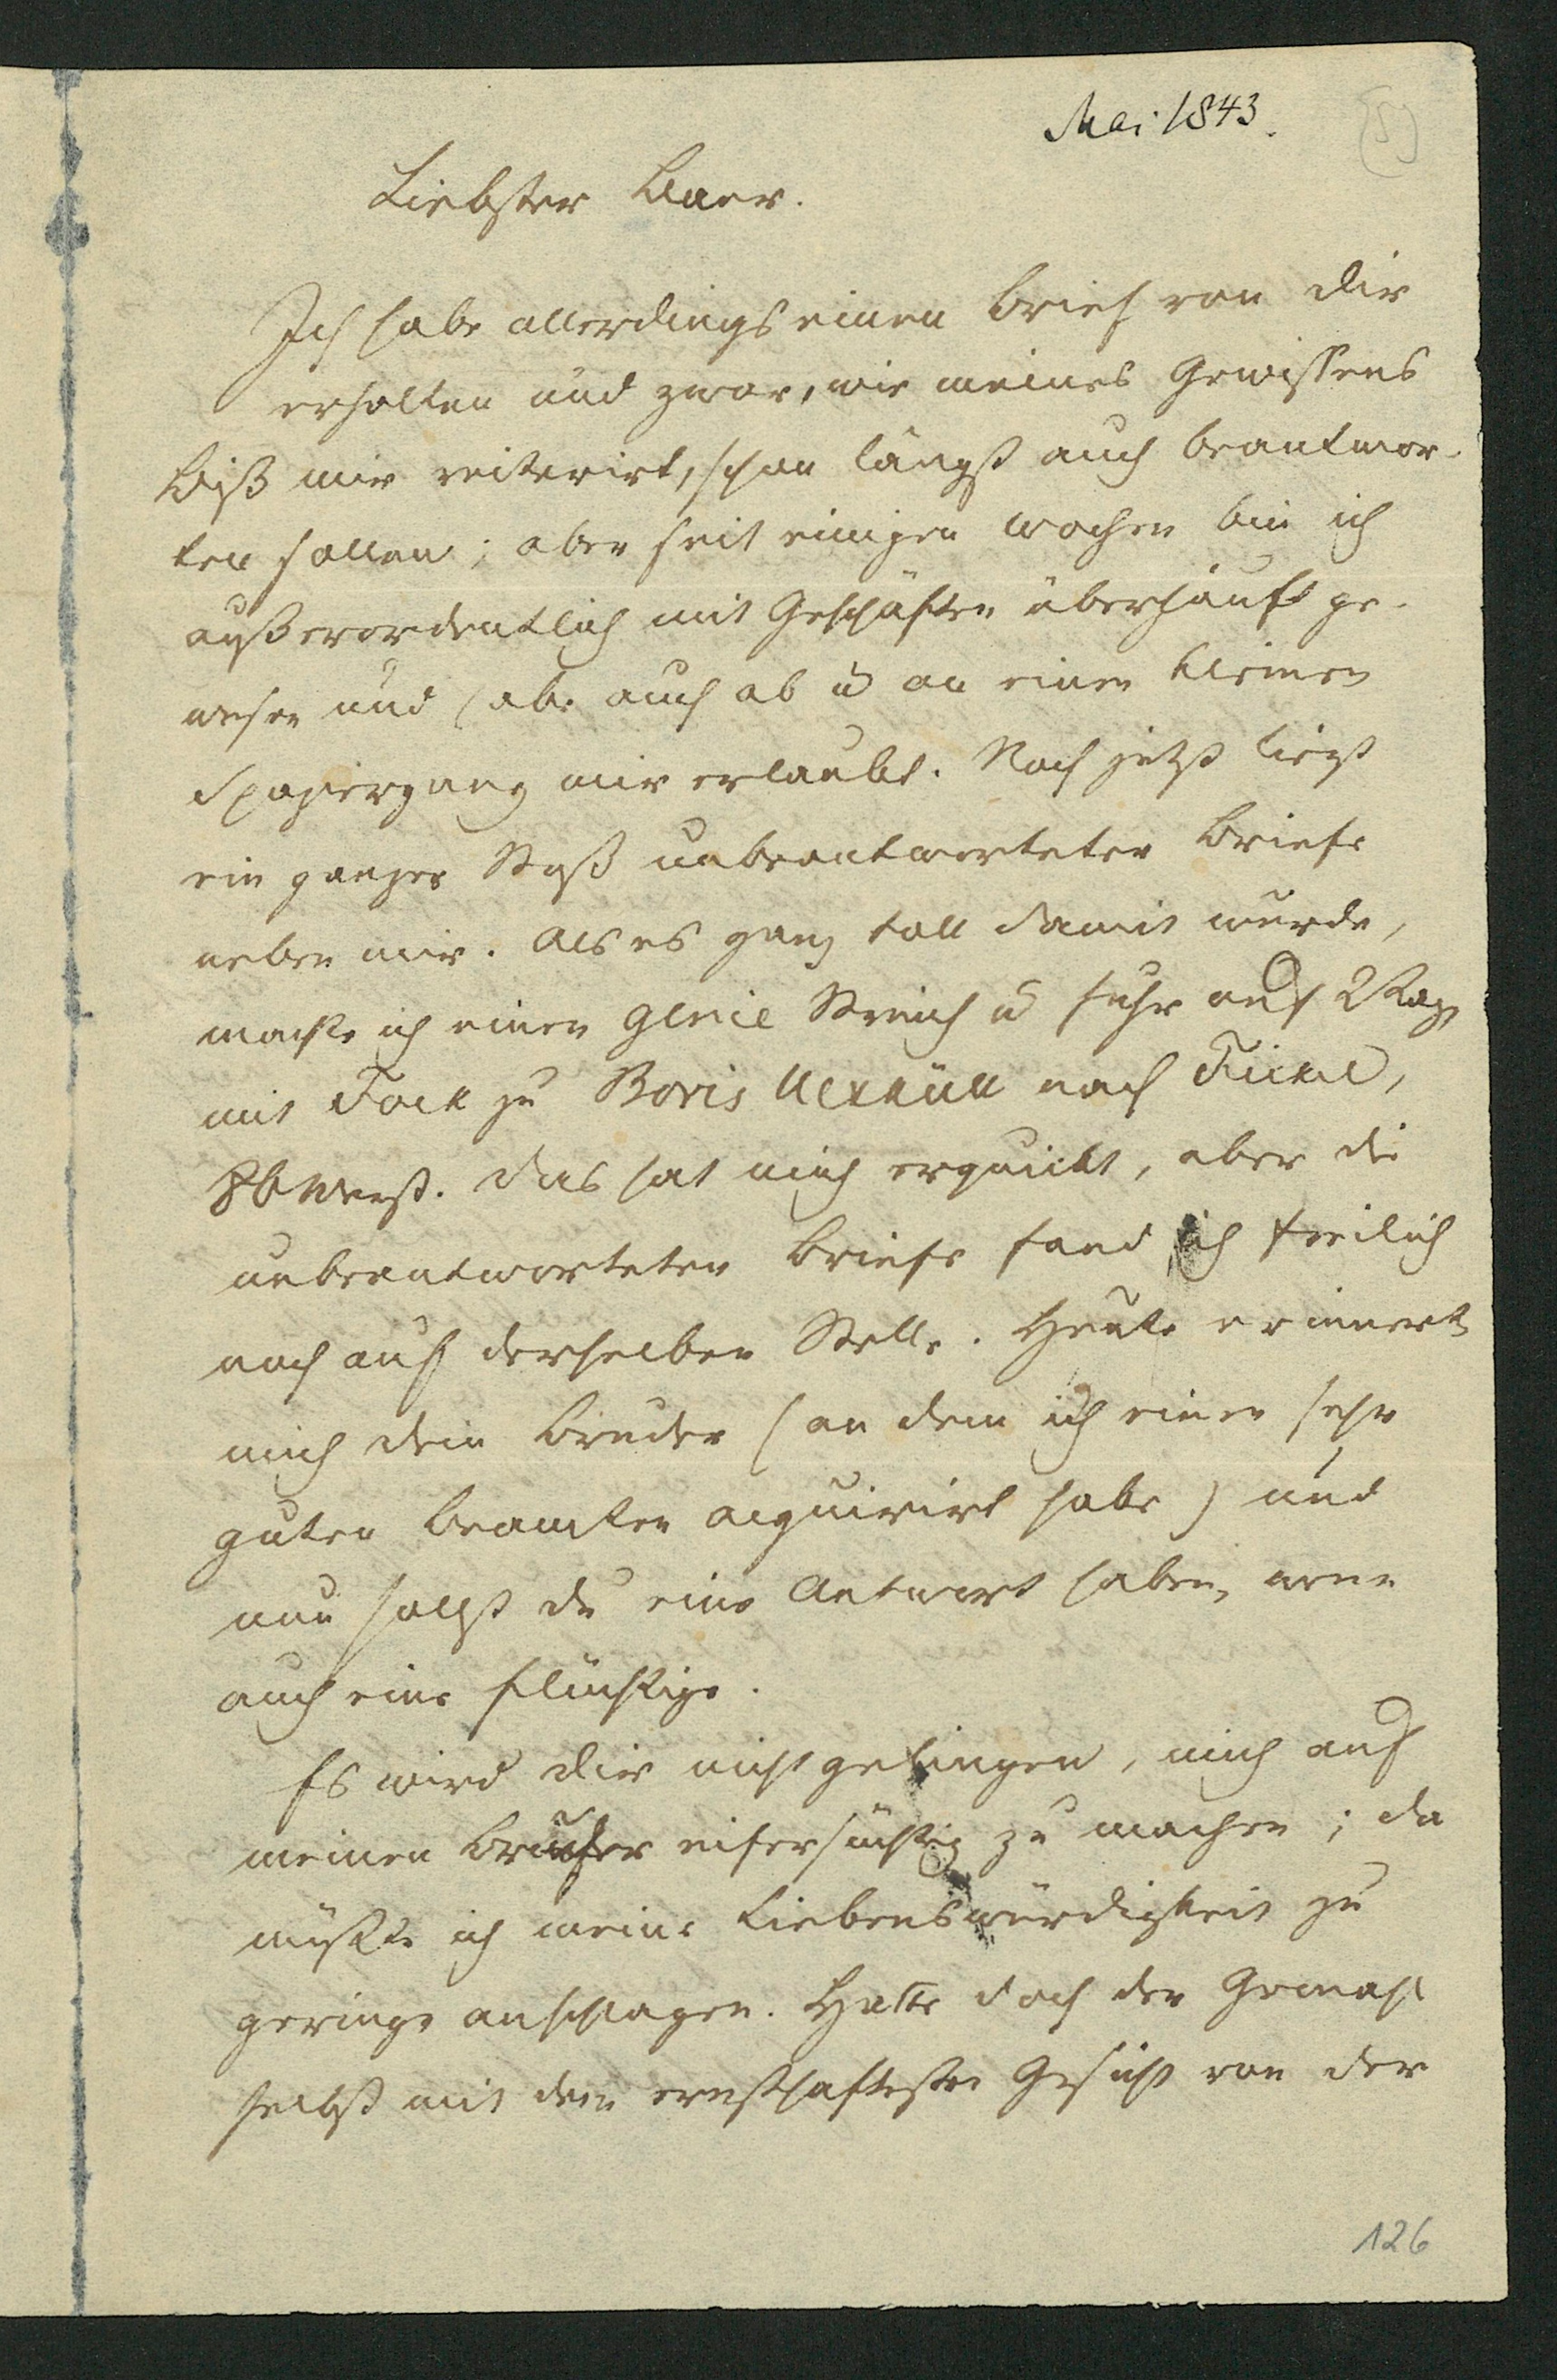 Mai 1843.
(5)
Liebster Baer.
Ich habe allerdings einen Brief von Dir
erhalten und zwar, wie meines Gewissens
Biß mir reiterirt, schon längst auch beantwor-
ten sollen; aber seit einigen Wochen bin ich
außerordentlich mit Geschäften überhäuft ge-
wesen und habe auch ab u an einen kleinen
Spaziergang mir erlaubt. Noch jetzt liegt
ein ganzer Stoß unbeantworteter Briefe
neben mir. Als es ganz toll damit wurde,
machte ich einen genie Streich u fuhr auf 2 Tage
mit Fock zu Boris Uexküll nach Fickel,
86 Werst. Das hat mich erquickt, aber die
unbeantworteten Briefe fand ich freilich
noch auf derselben Stelle. Heute erinnert
mich dein Bruder (an dem ich einen sehr
guten Beamten acquirirt habe) und
nun sollst du eine Antwort haben, wenn
auch eine flüchtige.
Es wird Dir nicht gelingen, mich auf
meinen Bruder eifersüchtig zu machen; da
müßte ich meine Liebenswürdigkeit zu
geringe anschlagen. Hatte doch der Gemahl
selbst mit dem ernsthaftesten Gesicht von der
126